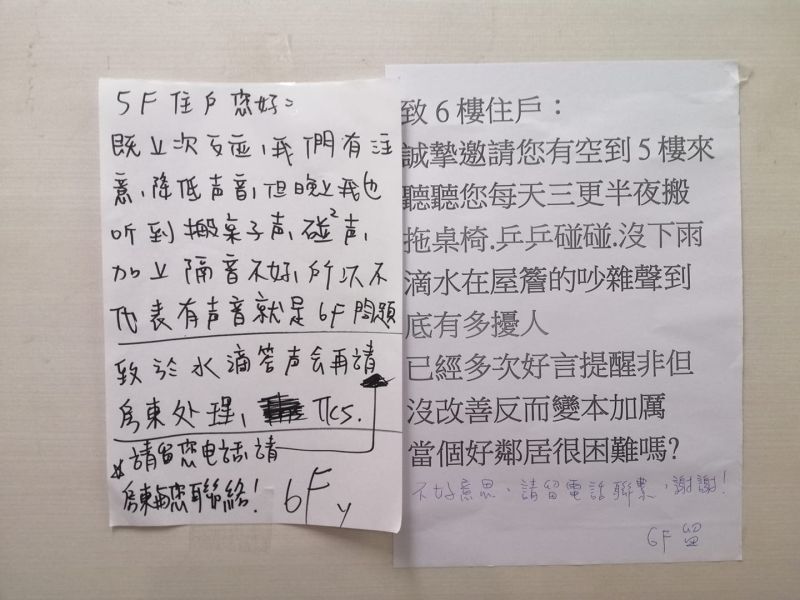 5F住戶您好：
既上次反应，我們有注
意，降低声音，但晚上我也
听到搬桌子声，碰²声，
加上隔音不好，所以不
代表有声音就是6F問題
致於水滴答声会再請
房東处理，Tks.
*請留您电話，請
房東與您聯絡！
6F
致6樓住戶：
誠摯邀請您有空到5樓來
聽聽您每天三更半夜搬
拖桌椅.乒乒碰碰.沒下雨
滴水在屋簷的吵雜聲到
底有多擾人
已經多次好言提醒非但
沒改善反而變本加厲
當個好鄰居很困難嗎?
不好意思，請留電話聯繫，謝謝！
6F 留